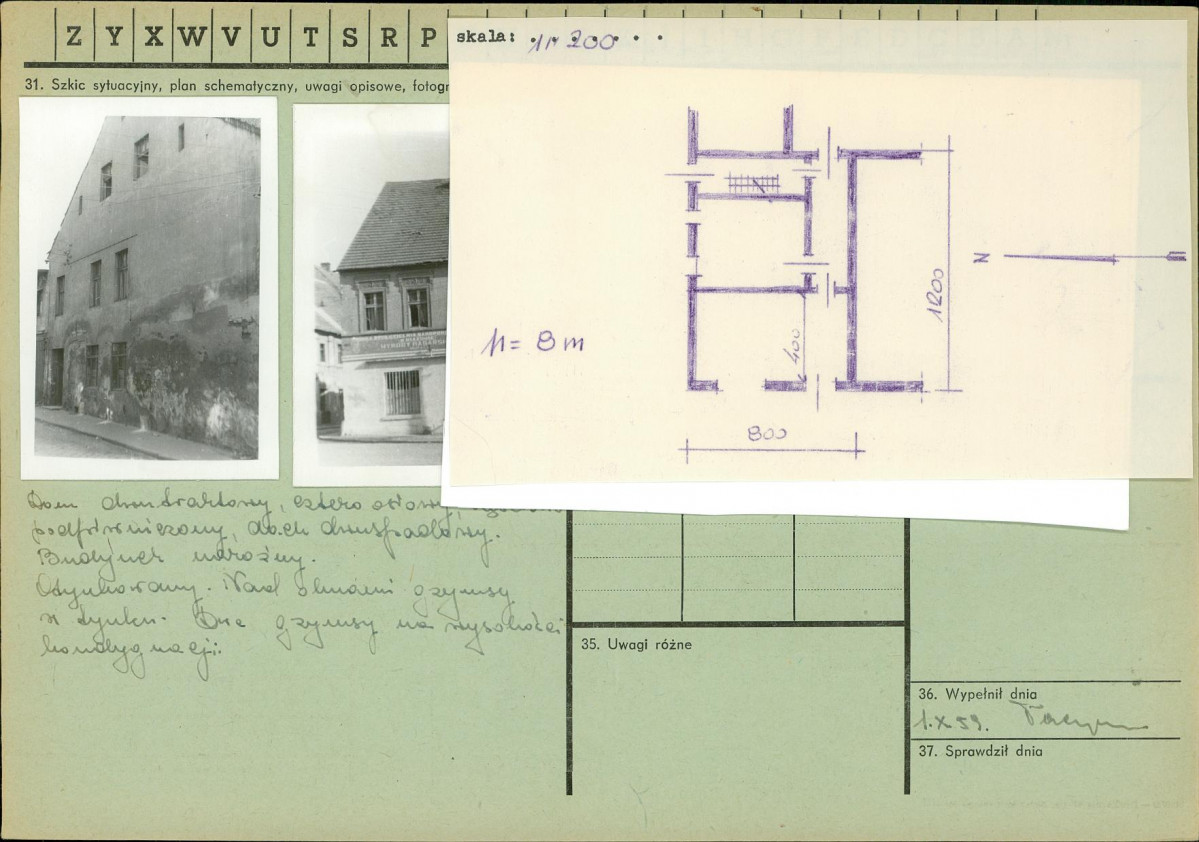 Z Y X W V U T S R P
skala: 1:200
31. Szkic sytuacyjny, plan schematyczny, uwagi opisowe, fotogr
N
1200
h = 8 m
400
800
Dom dwutraktowy, cztero osiowy,
podpiwniczony, dach dwuspadowy.
Budynek narożny.
Otynkowany. Nad oknami gzymsy
z tynku. Dwa gzymsy na wysokości
kondygnacji.
35. Uwagi różne
36. Wypełnił dnia
1.X 59.
37. Sprawdził dnia